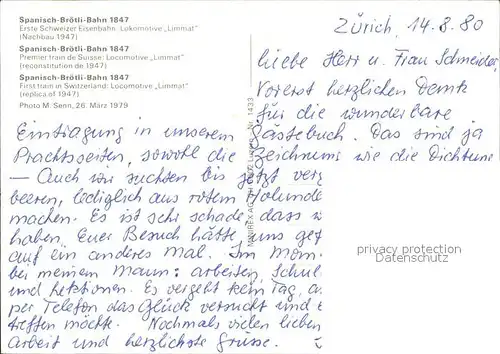 Spanisch-Brötli-Bahn 1847
Erste Schweizer Eisenbahn. Lokomotive „Limmat"
(Nachbau 1947)
Spanisch-Brötli-Bahn 1847
Premier train de Suisse: Locomotive „Limmat"
(reconstitution de 1947)
Spanisch-Brötli-Bahn 1847
First train in Switzerland: Locomotive „Limmat"
(replica of 1947)
Photo M. Senn, 26. März 1979
Zürich, 14.8.80
Liebe Herr u. Frau Schneider
Vorerst herzlichen Dank
für die wunderbare
Eintragung in unserem Gästebuch. Das sind ja
Prachtsseiten, sowohl die Zeichnung wie die Dichtung
– Auch wir suchten bis jetzt verg
beeren, lediglich aus rotem Holunde
machen. Es ist sehr schade, dass w
haben. Euer Besuch hätte uns gef
auf ein anderes Mal. Im Mom.
bei meinem Mann: arbeiten, Schul
und hetzen. Es vergeht kein Tag, a
per Telefon das Glück versucht und
treffen möchte. Nochmals vielen lieben
Arbeit und herzlichste Grüsse.
privacy protection
Datenschutz